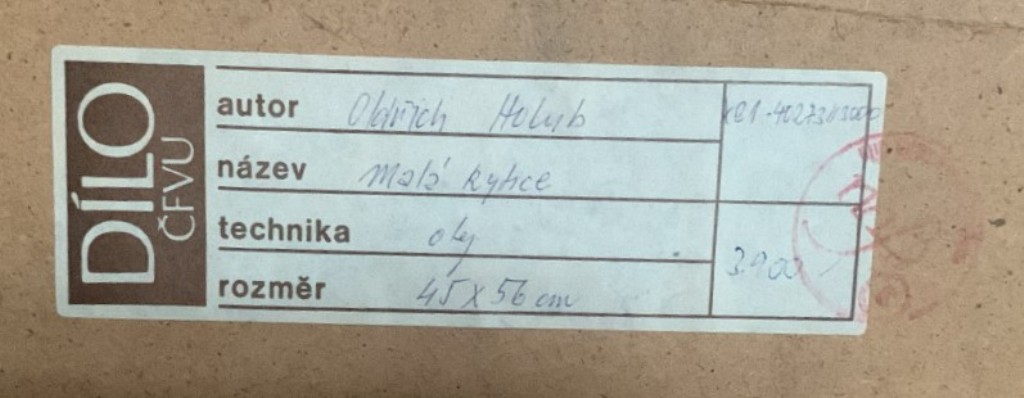 DÍLO
ČFVU
autor Oldřich Holub
název Malá kytice
technika olej
rozměr 45 x 56 cm
3.900